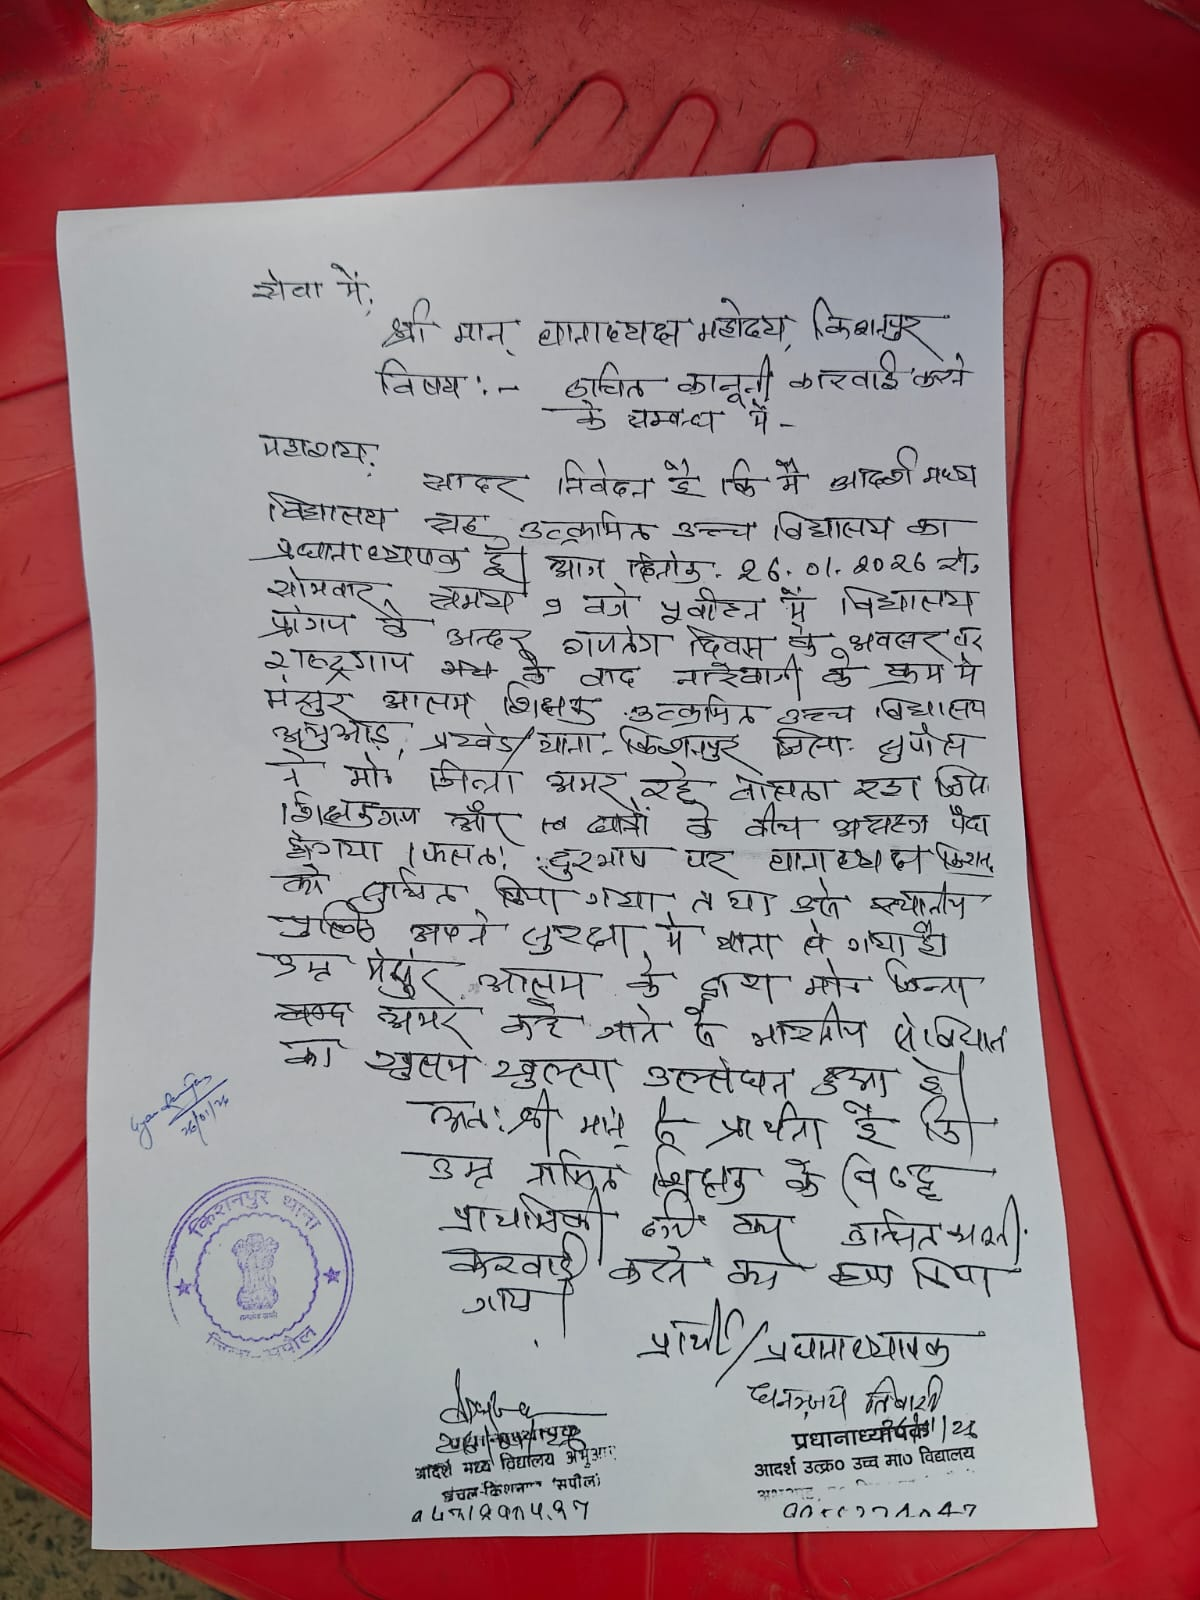 सेवा में,
श्री मान् थानाध्यक्ष महोदय, किशनपुर
विषय :- उचित कानूनी कारवाई करने
के सम्बन्ध में -
महाशय,
सादर निवेदन है कि मैं आदर्श मध्य
विद्यालय सह उत्क्रमित उच्च विद्यालय का
प्रधानाध्यापक हूँ। आज दिनांक. 26.01.2026 रोज
सोमवार, समय 9 बजे पूर्वाहन में विद्यालय
प्रांगण के अन्दर गणतंत्र दिवस के अवसर पर
राष्ट्रगाण के बाद नारेबाजी के क्रम में
मंसुर आलम शिक्षक उत्क्रमित उच्च विद्यालय
प्रखंड/थाना- किशनपुर जिला- सुपौल
ने मो० जिन्ना अमर रहे बोलता रहा
शिक्षकगण और छात्रों के बीच पैदा
हो गया। फलतः दुरभाष पर थानाध्यक्ष
को सुचित किया गया तथा उसे स्थानीय
पुलिस अपने सुरक्षा में थाना ले गया है।
उक्त मंसुर आलम के द्वारा मो० जिन्ना
अमर कहे जाने से भारतीय संविधान
का खुलम खुल्ला उल्लंघन हुआ है।
अतः श्री मान् से प्रार्थना है कि
उक्त शिक्षक के विरुद्ध
प्राथमिकी दर्ज कर उचित
कारवाई करने का कृपा किया
जाय।
प्रार्थी/प्रधानाध्यापक
धनञ्जय तिवारी
26/01/26
किशनपुर थाना
जिला-सुपौल
प्रधानाध्यापक
आदर्श मध्य विद्यालय
अंचल-किशन (सुपौल)
आदर्श उत्क्र० उच्च मा० विद्यालय